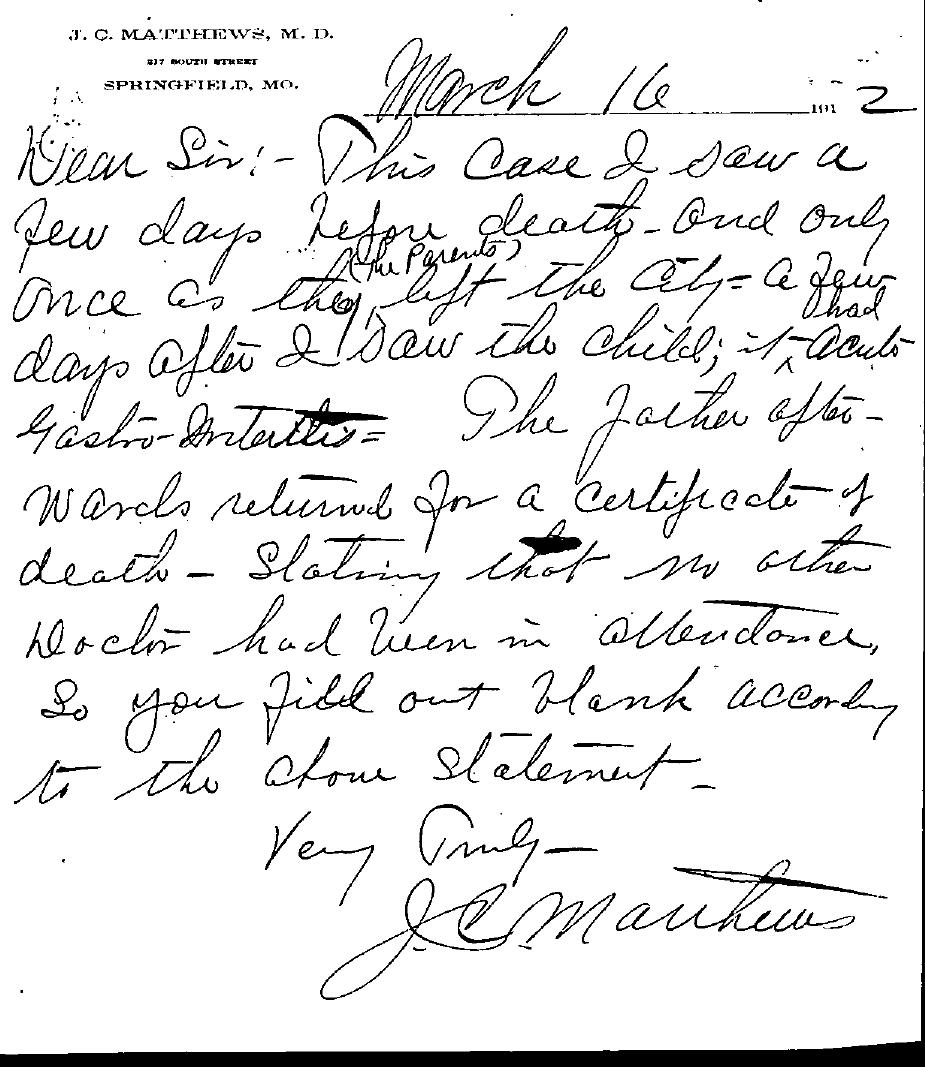 J. C. MATTHEWS, M. D.
217 SOUTH STREET
SPRINGFIELD, MO.
March 16 1912
Dear Sir:- This Case I saw a
few days before death - and only
(the Parents)
once as they left the City - a few
had
days after I saw the child; it acute
Gastro-Enteritis = The father after-
wards returned for a certificate of
death - Stating that no other
Doctor had been in attendance,
So you fill out blank according
to the above Statement -
Very Truly -
J. C. Matthews